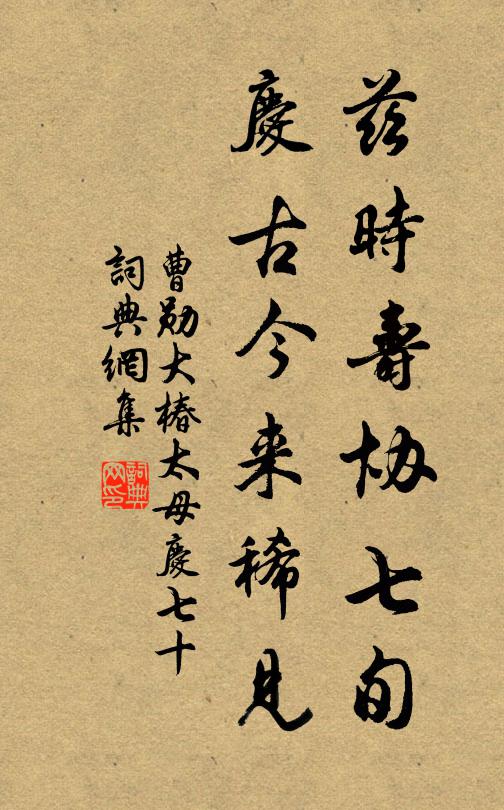 兹時壽协七旬
慶古今来稀見
曹勛大椿太母慶七十
詞典網集
詞典網印